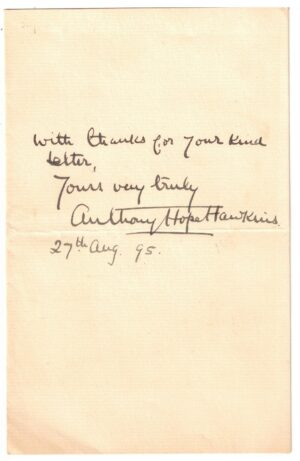 With thanks for your kind
letter,
Yours very truly
Anthony Hope Hawkins
27th Aug. 95.